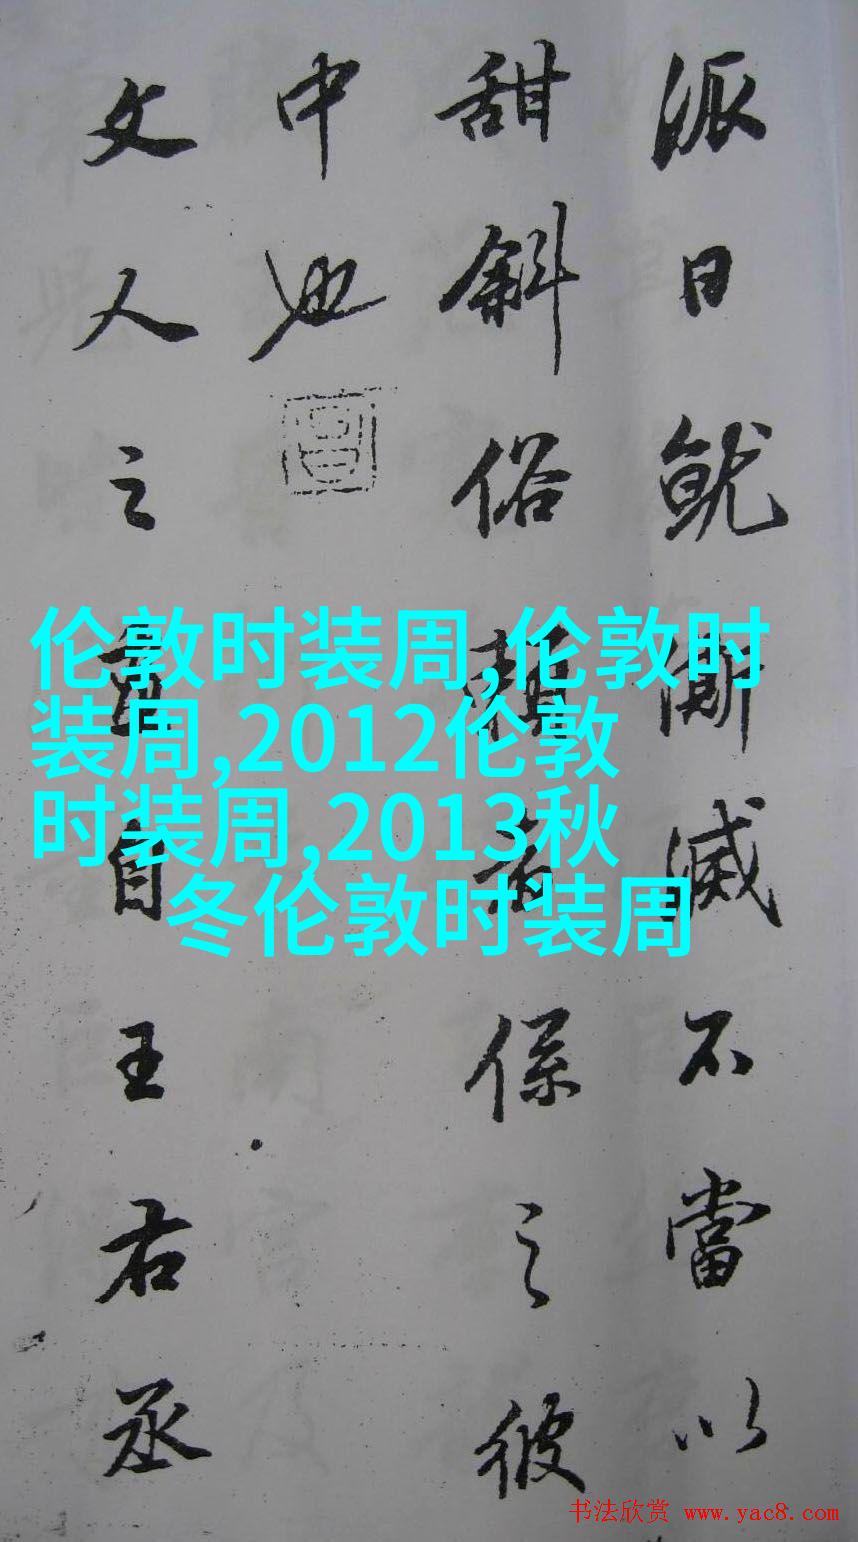 派日就澌滅不當以
甜斜俗賴者係之彼
中也
文人之畫自王右丞
伦敦时装周,伦敦时
装周,2012伦敦
时装周,2013秋
冬伦敦时装周
书法欣赏 www.yac8.com